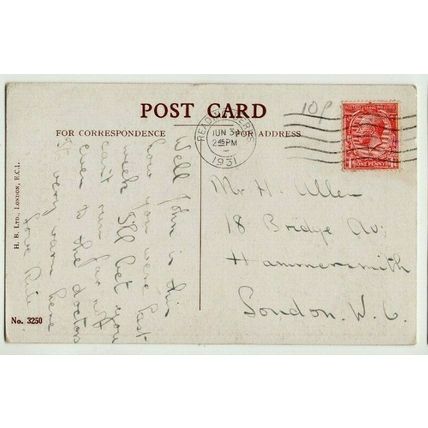 POST CARD
FOR CORRESPONDENCE
FOR ADDRESS
10p
READING BERKS
JUN 3
2 45 PM
1931
ONE PENNY
Well John is this
how you were last
week I'll bet you
can't run far not
even to the doctors
very warm here
Love
Mr H. Allen
18 Bridge Av;
Hammersmith
London. W. 6.
H. B. LTD., LONDON, E.C.1.
No. 3250